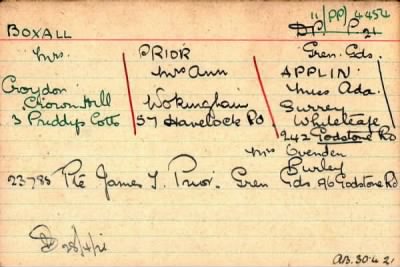 11/PP/4454
BOXALL DP/ P.21
Mrs. PRIOR Gren. Gds.
Mrs Ann APPLIN
Croydon Miss Ada.
Wokingham Surrey
3 Priddys Cotts 57 Havelock Rd Whyteleafe
242 Godstone Rd
Mrs Ovenden
Purley
23785 Pte James T. Prior. Gren Gds 96 Godstone Rd
28/4/21
AB.30.4.21